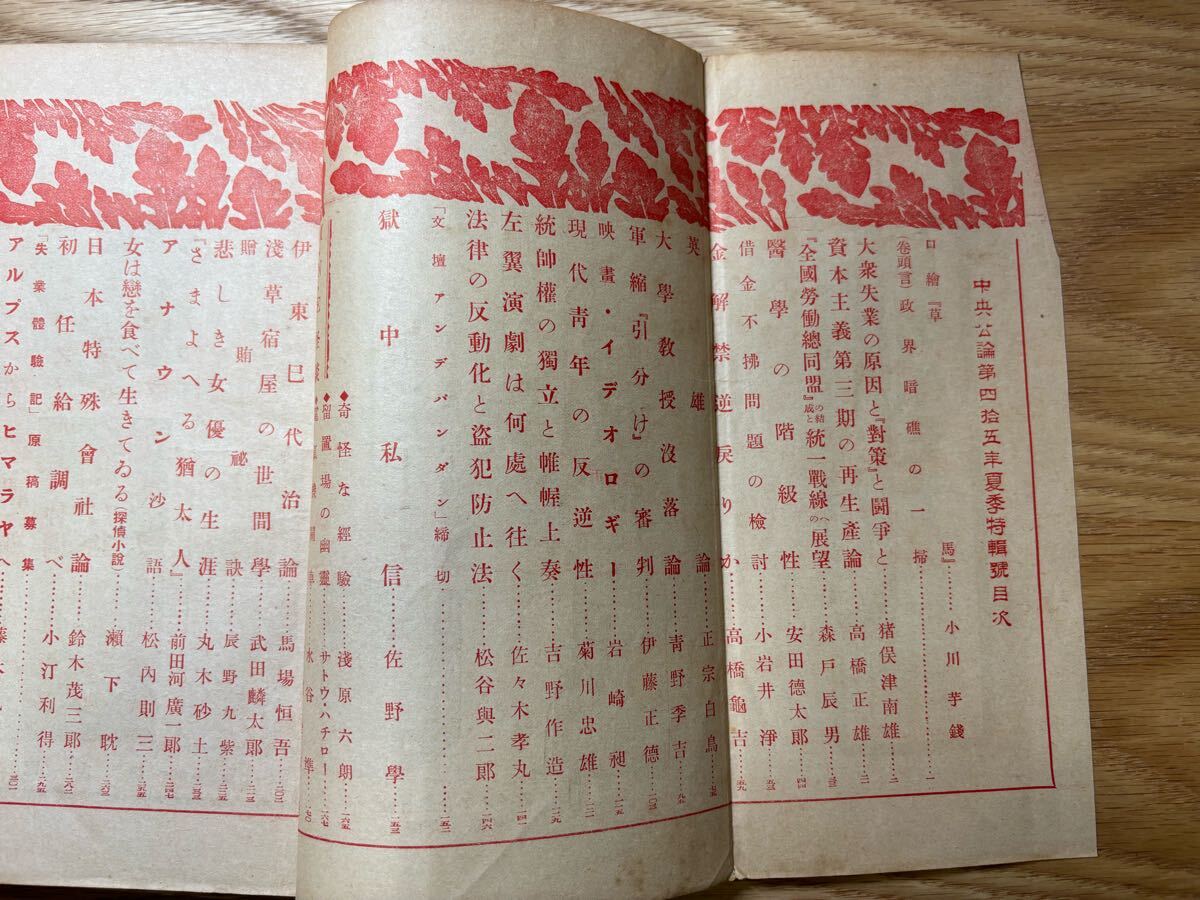 中央公論第四拾五年夏季特輯號目次
口繪『草馬』 小川芋錢
(卷頭言)政界暗礁の一掃……一
大衆失業の原因と『對策』と鬪爭と……猪俣津南雄…二
資本主義第三期の再生產論……高橋正雄
『全國勞働總同盟』の結成と統一戰線への展望……森戸辰男
醫學の階級性……安田德太郎…四四
借金不拂問題の檢討……小岩井淨…五三
金解禁逆戻りか……高橋龜吉…五九
英雄論……正宗白鳥…七五
大學敎授沒落論……靑野季吉…九五
軍縮『引分け』の審判……伊藤正德…一〇三
映畫・イデオロギー……岩崎昶…一一五
現代靑年の反逆性……菊川忠雄…一二一
統帥權の獨立と帷幄上奏……吉野作造…一二九
左翼演劇は何處へ往く……佐々木孝丸…一四一
法律の反動化と盜犯防止法……松谷與二郎…一四六
「文壇アンデパンダン」締切……一五二
獄中私信……佐野學…一五三
◆奇怪な經驗……淺原六朗…一六五
◆留置場の幽靈……サトウ・ハチロー…一六七
水谷準…一七〇
伊東巳代治論……馬場恒吾…二〇三
淺草宿屋の世間學……武田麟太郎…二一三
贈賄祕訣……辰野九紫…二二五
悲しき女優の生涯……丸木砂土…二三三
『さまよへる猶太人』……前田河廣一郎…二四七
アナウンサ語……松內則三…二五五
女は戀を食べて生きてゐる(探偵小說)……瀨下耽…二六三
日本特殊會社論……鈴木茂三郎…二八二
初任給調べ……小汀利得…二九五
「失業體驗記」原稿募集
アルプスからヒマラヤへ……三〇一